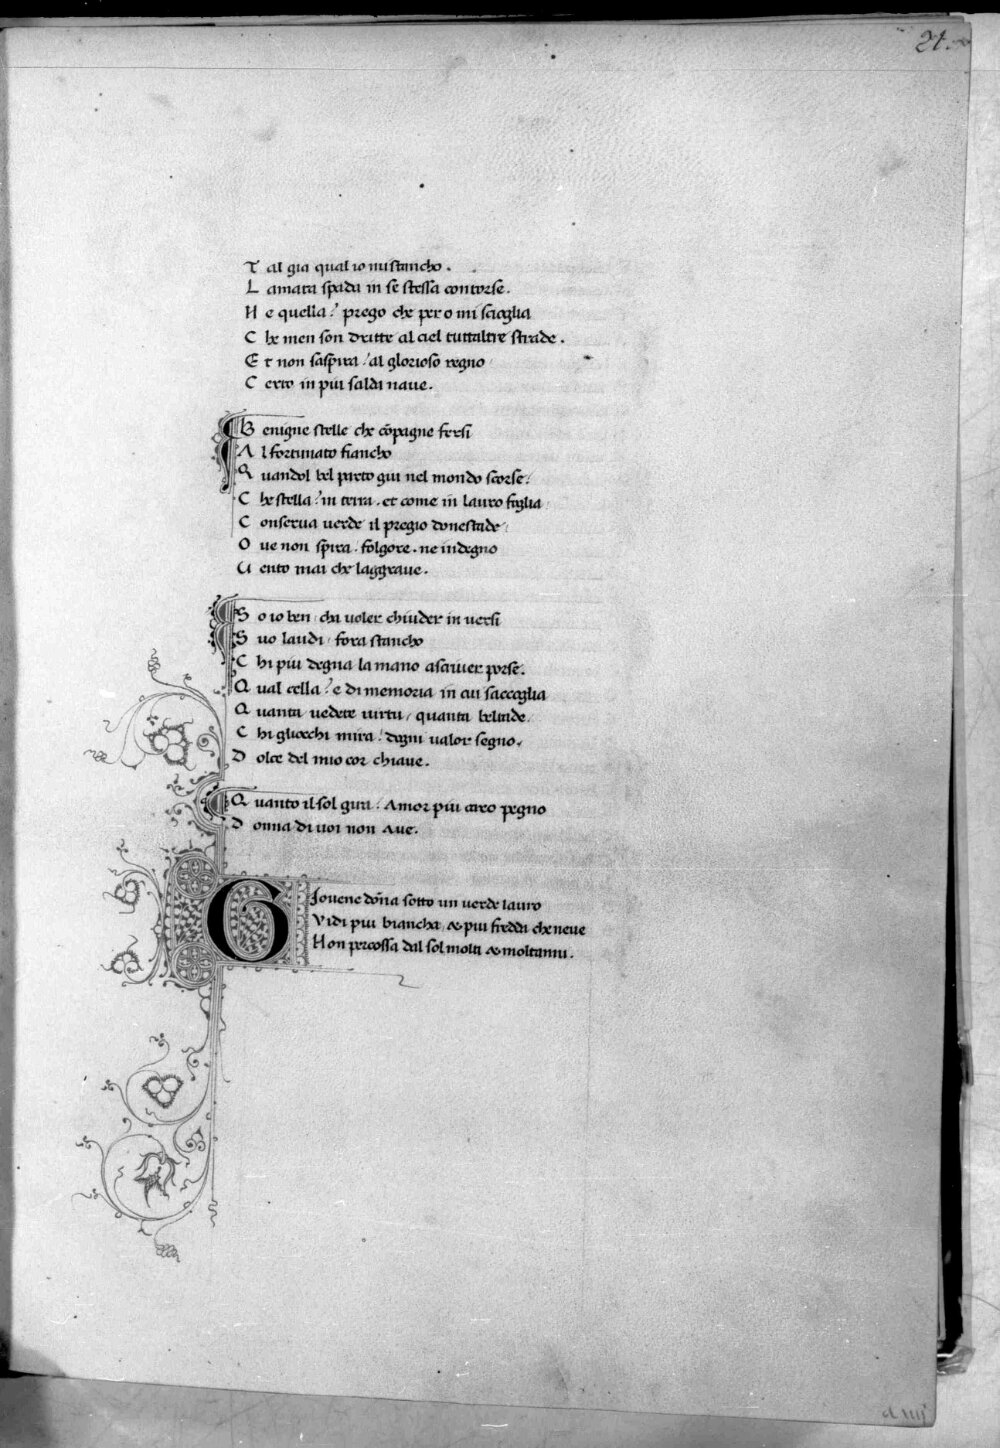 21.
T al gia qual io mi stancho .
L amata spada in se stessa contorse .
N e quella / prego che pero mi scioglia
C he men son dritte al ciel tuttaltre strade .
E t non saspira / al glorioso regno
C erto in piu salda naue .
B enigne stelle che cōpagne fersi
A l fortunato fiancho
Q uandol bel parto giu nel mondo scorse /
C he stella / in terra . et come in lauro foglia
C onserua uerde il pregio donestade /
O ue non spira . folgore . ne indegno
U ento mai che laggraue .
S o io ben / cha uoler chiuder in uersi
S uo laudi / fora stancho
C hi piu degna la mano ascriuer porse .
Q ual cella / e di memoria in cui saccoglia
Q uanta uedete uirtu / quanta beltade .
C hi gliocchi mira / dogni ualor segno .
D olce del mio cor chiaue .
Q uanto il sol gira / Amor piu caro pegno
D onna di uoi non aue .
Giouene dōna sotto un uerde lauro
Vidi piu biancha / & piu fredda che neue
Non percossa dal sol molti & moltanni .
d iiij